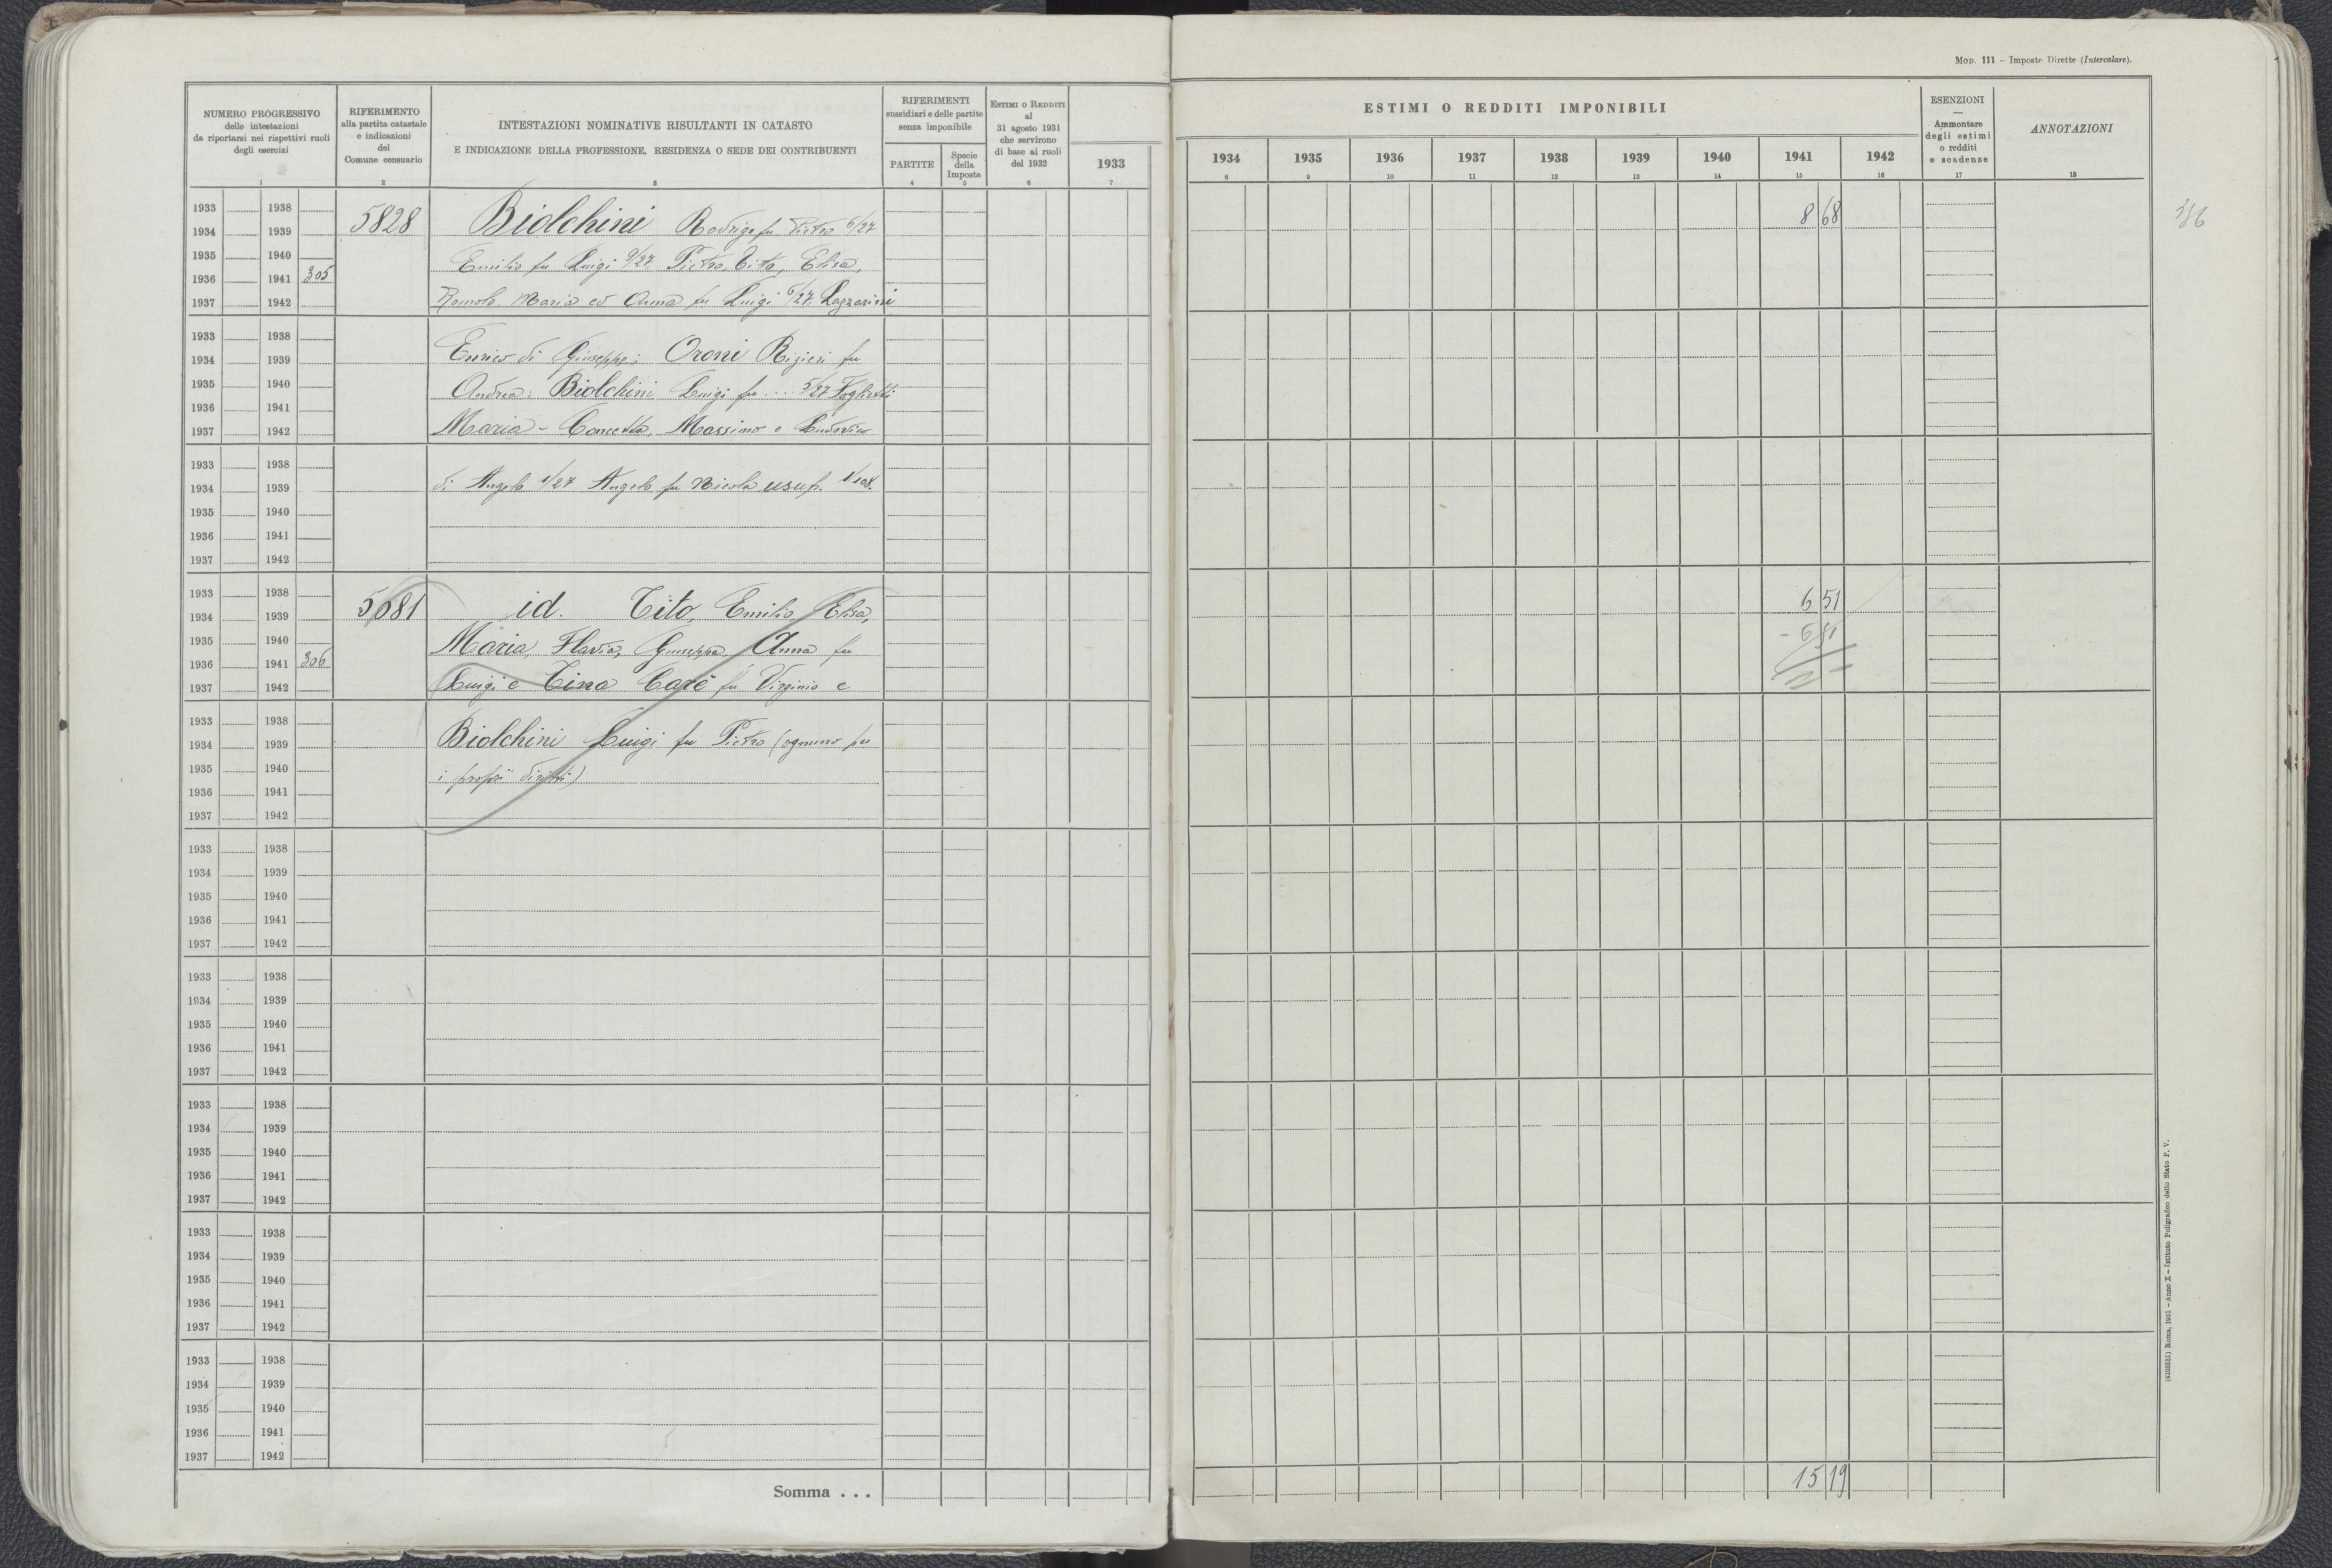 MOD. 111 – Imposte Dirette (Intercalare).
NUMERO PROGRESSIVO
delle intestazioni
da riportarsi nei rispettivi ruoli
degli esercizi
RIFERIMENTO
alla partita catastale
e indicazioni
del
Comune censuario
INTESTAZIONI NOMINATIVE RISULTANTI IN CATASTO
E INDICAZIONE DELLA PROFESSIONE, RESIDENZA O SEDE DEI CONTRIBUENTI
RIFERIMENTI
sussidiari e delle partite
senza imponibile
PARTITE
Specie
della
Imposta
ESTIMI O REDDITI
al
31 agosto 1931
che servirono
di base ai ruoli
del 1932
1933
ESTIMI O REDDITI IMPONIBILI
1934 1935 1936 1937 1938 1939 1940 1941 1942
ESENZIONI
—
Ammontare
degli estimi
o redditi
e scadenze
ANNOTAZIONI
1 2 3 4 5 6 7 8 9 10 11 12 13 14 15 16 17 18
1933 1938 5828 Biolchini Rodrigo fu Pietro 6/27 8 68
1934 1939
1935 1940 Emilio fu Luigi 9/27 Pietro, Tito, Elisa,
1936 1941 305
1937 1942 Romolo, Maria ed Anna fu Luigi 6/27 Lazzarini
1933 1938
1934 1939 Enrico di Giuseppe; Oroni Rizieri fu
1935 1940 Andrea; Biolchini Luigi fu .... 5/27 Foglietti
1936 1941
1937 1942 Maria - Concetta, Massimo e Ludovico
1933 1938
1934 1939 di Angelo 1/27 Angelo fu Nicola usuf. 1/108.
1935 1940
1936 1941
1937 1942
1933 1938 5081 id. Tito, Emilio, Elisa, 6 51
1934 1939
1935 1940 Maria, Flavia, Giuseppa, Anna fu - 6 51
1936 1941 306
1937 1942 Luigi e Tina Carè fu Virginio e
1933 1938
1934 1939 Biolchini Luigi fu Pietro (ognuno per
1935 1940 i propri diritti)
1936 1941
1937 1942
1933 1938
1934 1939
1935 1940
1936 1941
1937 1942
1933 1938
1934 1939
1935 1940
1936 1941
1937 1942
1933 1938
1934 1939
1935 1940
1936 1941
1937 1942
1933 1938
1934 1939
1935 1940
1936 1941
1937 1942
1933 1938
1934 1939
1935 1940
1936 1941
1937 1942
Somma . . . 15 19
Roma, 1931 – Anno X – Istituto Poligrafico dello Stato P. V.